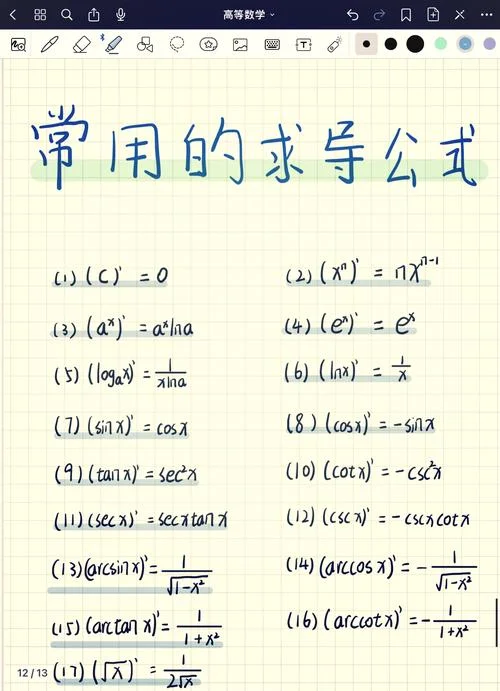 高等数学
常用的求导公式
(1) (C)' = 0 (2) (xⁿ)' = nxⁿ⁻¹
(3) (aˣ)' = aˣlna (4) (eˣ)' = eˣ
(5) (logₐx)' = 1/(xlna) (6) (lnx)' = 1/x
(7) (sinx)' = cosx (8) (cosx)' = -sinx
(9) (tanx)' = sec²x (10) (cotx)' = -csc²x
(11) (secx)' = secxtanx (12) (cscx)' = -cscxcotx
(13) (arcsinx)' = 1/√(1-x²) (14) (arccosx)' = - 1/√(1-x²)
(15) (arctanx)' = 1/(1+x²) (16) (arccotx)' = - 1/(1+x²)
12/13 (17) (√x)' = 1/(2√x)